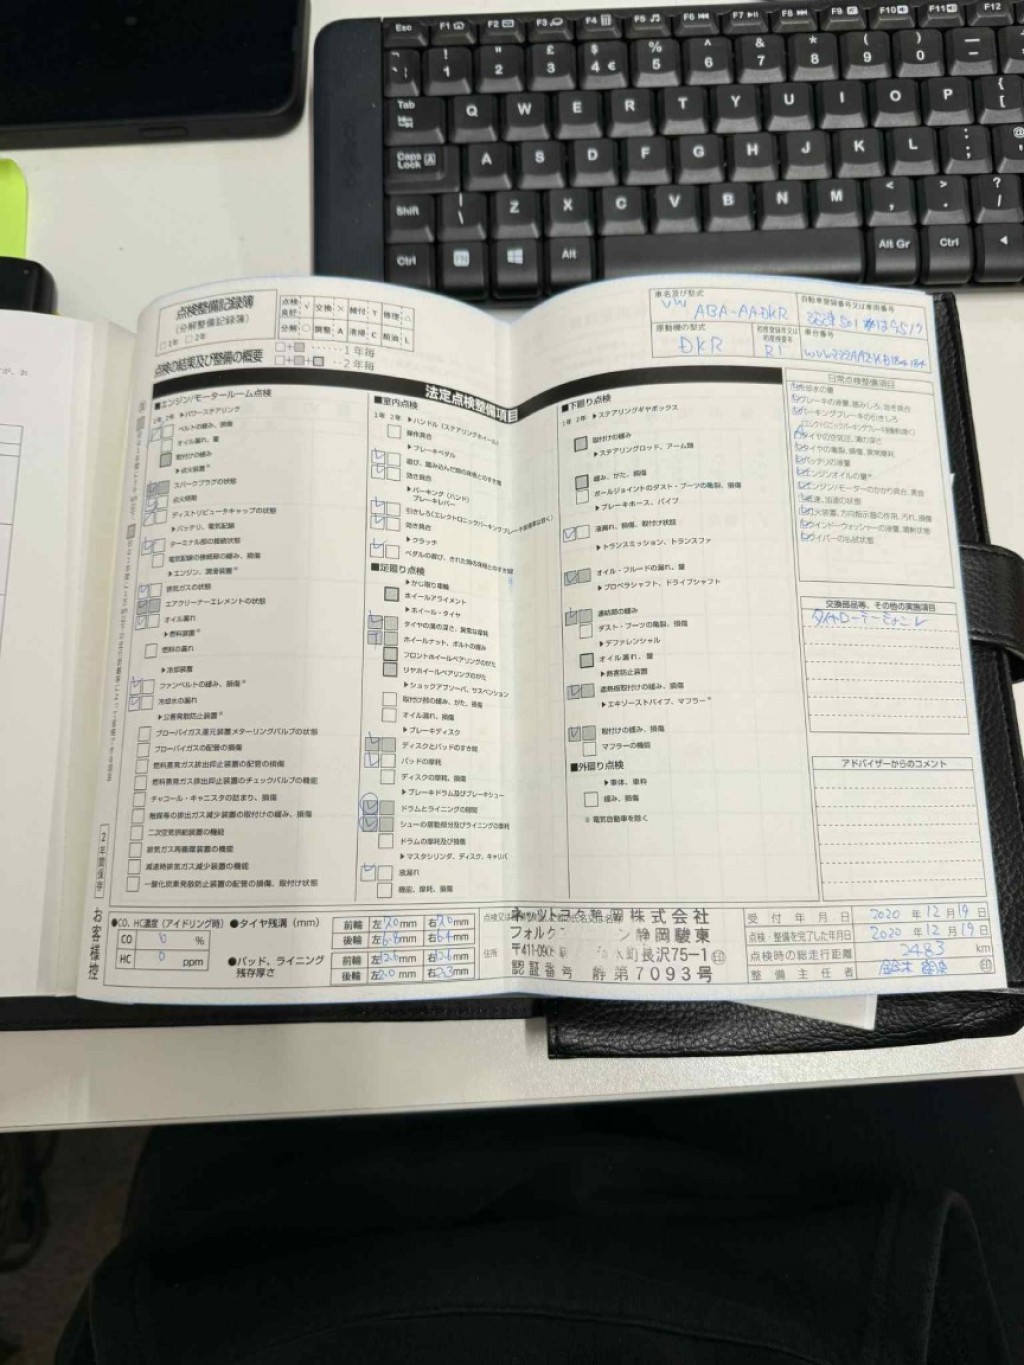 Esc F1 F2 F3 F4 F5 F6 F7 F8 F9 F10 F11 F12
! 1 " 2 £ 3 $ 4 € % 5 ^ 6 & 7 * 8 ( 9 ) 0 — -
Tab Q W E R T Y U I O P { [
Caps Lock A S D F G H J K L : ; @
Shift | \ Z X C V B N M < , > . ? /
Ctrl Alt Alt Gr Ctrl
点検整備記録簿
(分解整備記録簿)
□1年 □2年
点検良好 ✓ 交換 × 締付 T 修理 △
分解 ○ 調整 A 清掃 C 給油 L
点検の結果及び整備の概要
□+□ ……1年毎
□+□+□ ‥2年毎
車名及び型式
VW ABA-AADKR
自動車登録番号又は車両番号
原動機の型式
DKR
R1
車台番号
法定点検整備項目
■エンジン/モータールーム点検
1年 2年 ▶パワーステアリング
ベルトの緩み、損傷
オイル漏れ、量
取付けの緩み
▶点火装置※
スパークプラグの状態
点火時期
ディストリビュータキャップの状態
▶バッテリ、電気配線
ターミナル部の接続状態
電気配線の接続部の緩み、損傷
▶エンジン、潤滑装置※
排気ガスの状態
エアクリーナーエレメントの状態
オイル漏れ
▶燃料装置※
燃料の漏れ
▶冷却装置
ファンベルトの緩み、損傷※
冷却水の漏れ
▶公害発散防止装置※
ブローバイガス還元装置メターリングバルブの状態
ブローバイガスの配管の損傷
燃料蒸発ガス排出抑止装置の配管の損傷
燃料蒸発ガス排出抑止装置のチェックバルブの機能
チャコール・キャニスタの詰まり、損傷
触媒等の排出ガス減少装置の取付けの緩み、損傷
二次空気供給装置の機能
排気ガス再循環装置の機能
減速時排気ガス減少装置の機能
一酸化炭素発散防止装置の配管の損傷、取付け状態
2年間保存
お客様控
■室内点検
1年 2年 ▶ハンドル (ステアリングホイール)
操作具合
▶ブレーキペダル
遊び、踏み込んだ時の床板とのすき間
効き具合
▶パーキング (ハンド)
ブレーキレバー
引きしろ(エレクトロニックパーキングブレーキ装着車は除く)
効き具合
▶クラッチ
ペダルの遊び、きれた時の床板とのすき間
■足廻り点検
▶かじ取り車輪
ホイールアライメント
▶ホイール・タイヤ
タイヤの溝の深さ、異常な摩耗
ホイールナット、ボルトの緩み
フロントホイールベアリングのがた
リヤホイールベアリングのがた
▶ショックアブソーバ、サスペンション
取付け部の緩み、がた、損傷
オイル漏れ、損傷
▶ブレーキディスク
ディスクとパッドのすき間
パッドの摩耗
ディスクの摩耗、損傷
▶ブレーキドラム及びブレーキシュー
ドラムとライニングの間隙
シューの摺動部分及びライニングの摩耗
ドラムの摩耗及び損傷
▶マスタシリンダ、ディスク、キャリパ
液漏れ
機能、摩耗、損傷
■下廻り点検
1年 2年 ▶ステアリングギヤボックス
取付けの緩み
▶ステアリングロッド、アーム類
緩み、がた、損傷
ボールジョイントのダスト・ブーツの亀裂、損傷
▶ブレーキホース、パイプ
液漏れ、損傷、取付け状態
▶トランスミッション、トランスファ
オイル・フルードの漏れ、量
▶プロペラシャフト、ドライブシャフト
連結部の緩み
ダスト・ブーツの亀裂、損傷
▶デファレンシャル
オイル漏れ、量
▶熱害防止装置
遮熱板取付けの緩み、損傷
▶エキゾーストパイプ、マフラー※
取付けの緩み、損傷
マフラーの機能
■外廻り点検
▶車体、車枠
緩み、損傷
※電気自動車を除く
日常点検整備項目
冷却水の量
ブレーキの液量、踏みしろ、効き具合
パーキングブレーキの引きしろ
(エレクトロニックパーキングブレーキ装着車は除く)
タイヤの空気圧、溝の深さ
タイヤの亀裂、損傷、異常摩耗
バッテリの液量
エンジンオイルの量※
エンジン/モーターのかかり具合、異音
低速、加速の状態
灯火装置、方向指示器の作用、汚れ、損傷
ウインドーウォッシャーの液量、噴射状態
ワイパーの払拭状態
交換部品等、その他の実施項目
アドバイザーからのコメント
●CO、HC濃度 (アイドリング時)
CO 0 %
HC 0 ppm
●タイヤ残溝 (mm)
前輪 左7.0mm 右7.0mm
後輪 左6.8mm 右6.4mm
●パッド、ライニング残存厚さ
前輪 左12.6mm 右12.6mm
後輪 左2.0mm 右2.3mm
住所
ネッツトヨタ静岡株式会社
フォルクス ン静岡駿東
町長沢75-1
認証番号 静第7093号
受付年月日 2020年12月19日
点検・整備を完了した年月日 2020年12月19日
点検時の総走行距離 2483 km
整備主任者 鈴木